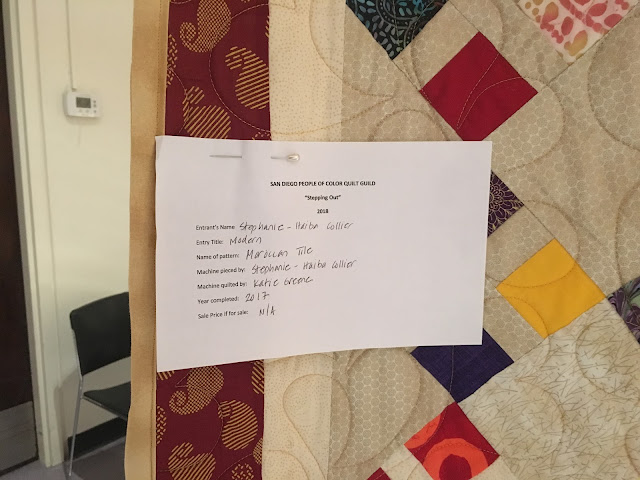 SAN DIEGO PEOPLE OF COLOR QUILT GUILD
"Stepping Out"
2018
Entrant's Name: Stephanie - Haiba Collier
Entry Title: Modern
Name of pattern: Moroccan Tile
Machine pieced by: Stephanie - Haiba Collier
Machine quilted by: Katie Greene
Year completed: 2017
Sale Price if for sale: N/A